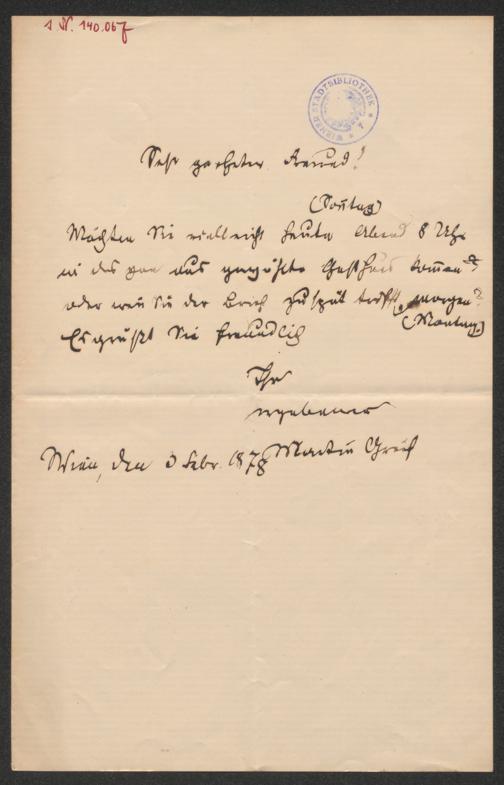 I.N. 140.067
WIENER STADTBIBLIOTHEK
Sehr geehrter Freund!
(Sontag)
Möchten Sie vielleicht heute Abend 8 Uhr
in das von uns gewählte Gasthaus kommen?
oder wenn Sie der Brief zu spät trifft, morgen?
(Montag)
Es grüßt Sie freundlich
Ihr
ergebener
Wien, den 3 Febr. 1878 Martin Greif